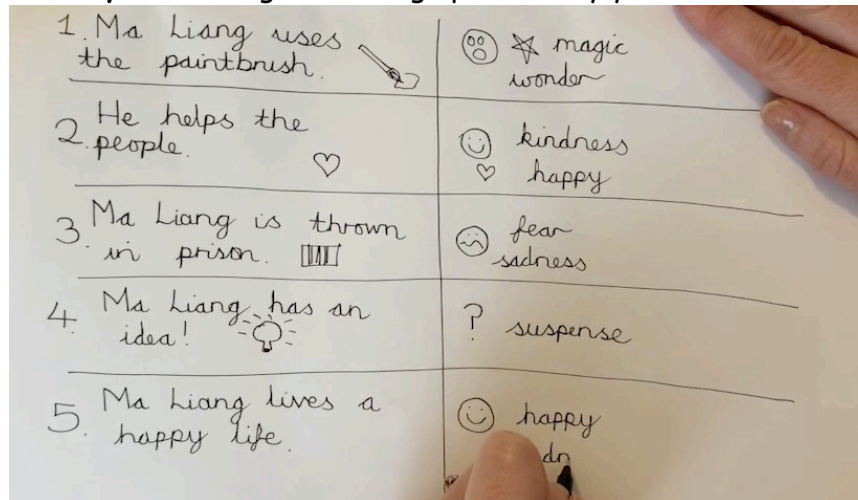 1. Ma Liang uses
the paintbrush.
magic
wonder
2. He helps the
people.
kindness
happy
3. Ma Liang is thrown
in prison.
fear
sadness
4. Ma Liang has an
idea!
? suspense
5. Ma Liang lives a
happy life.
happy